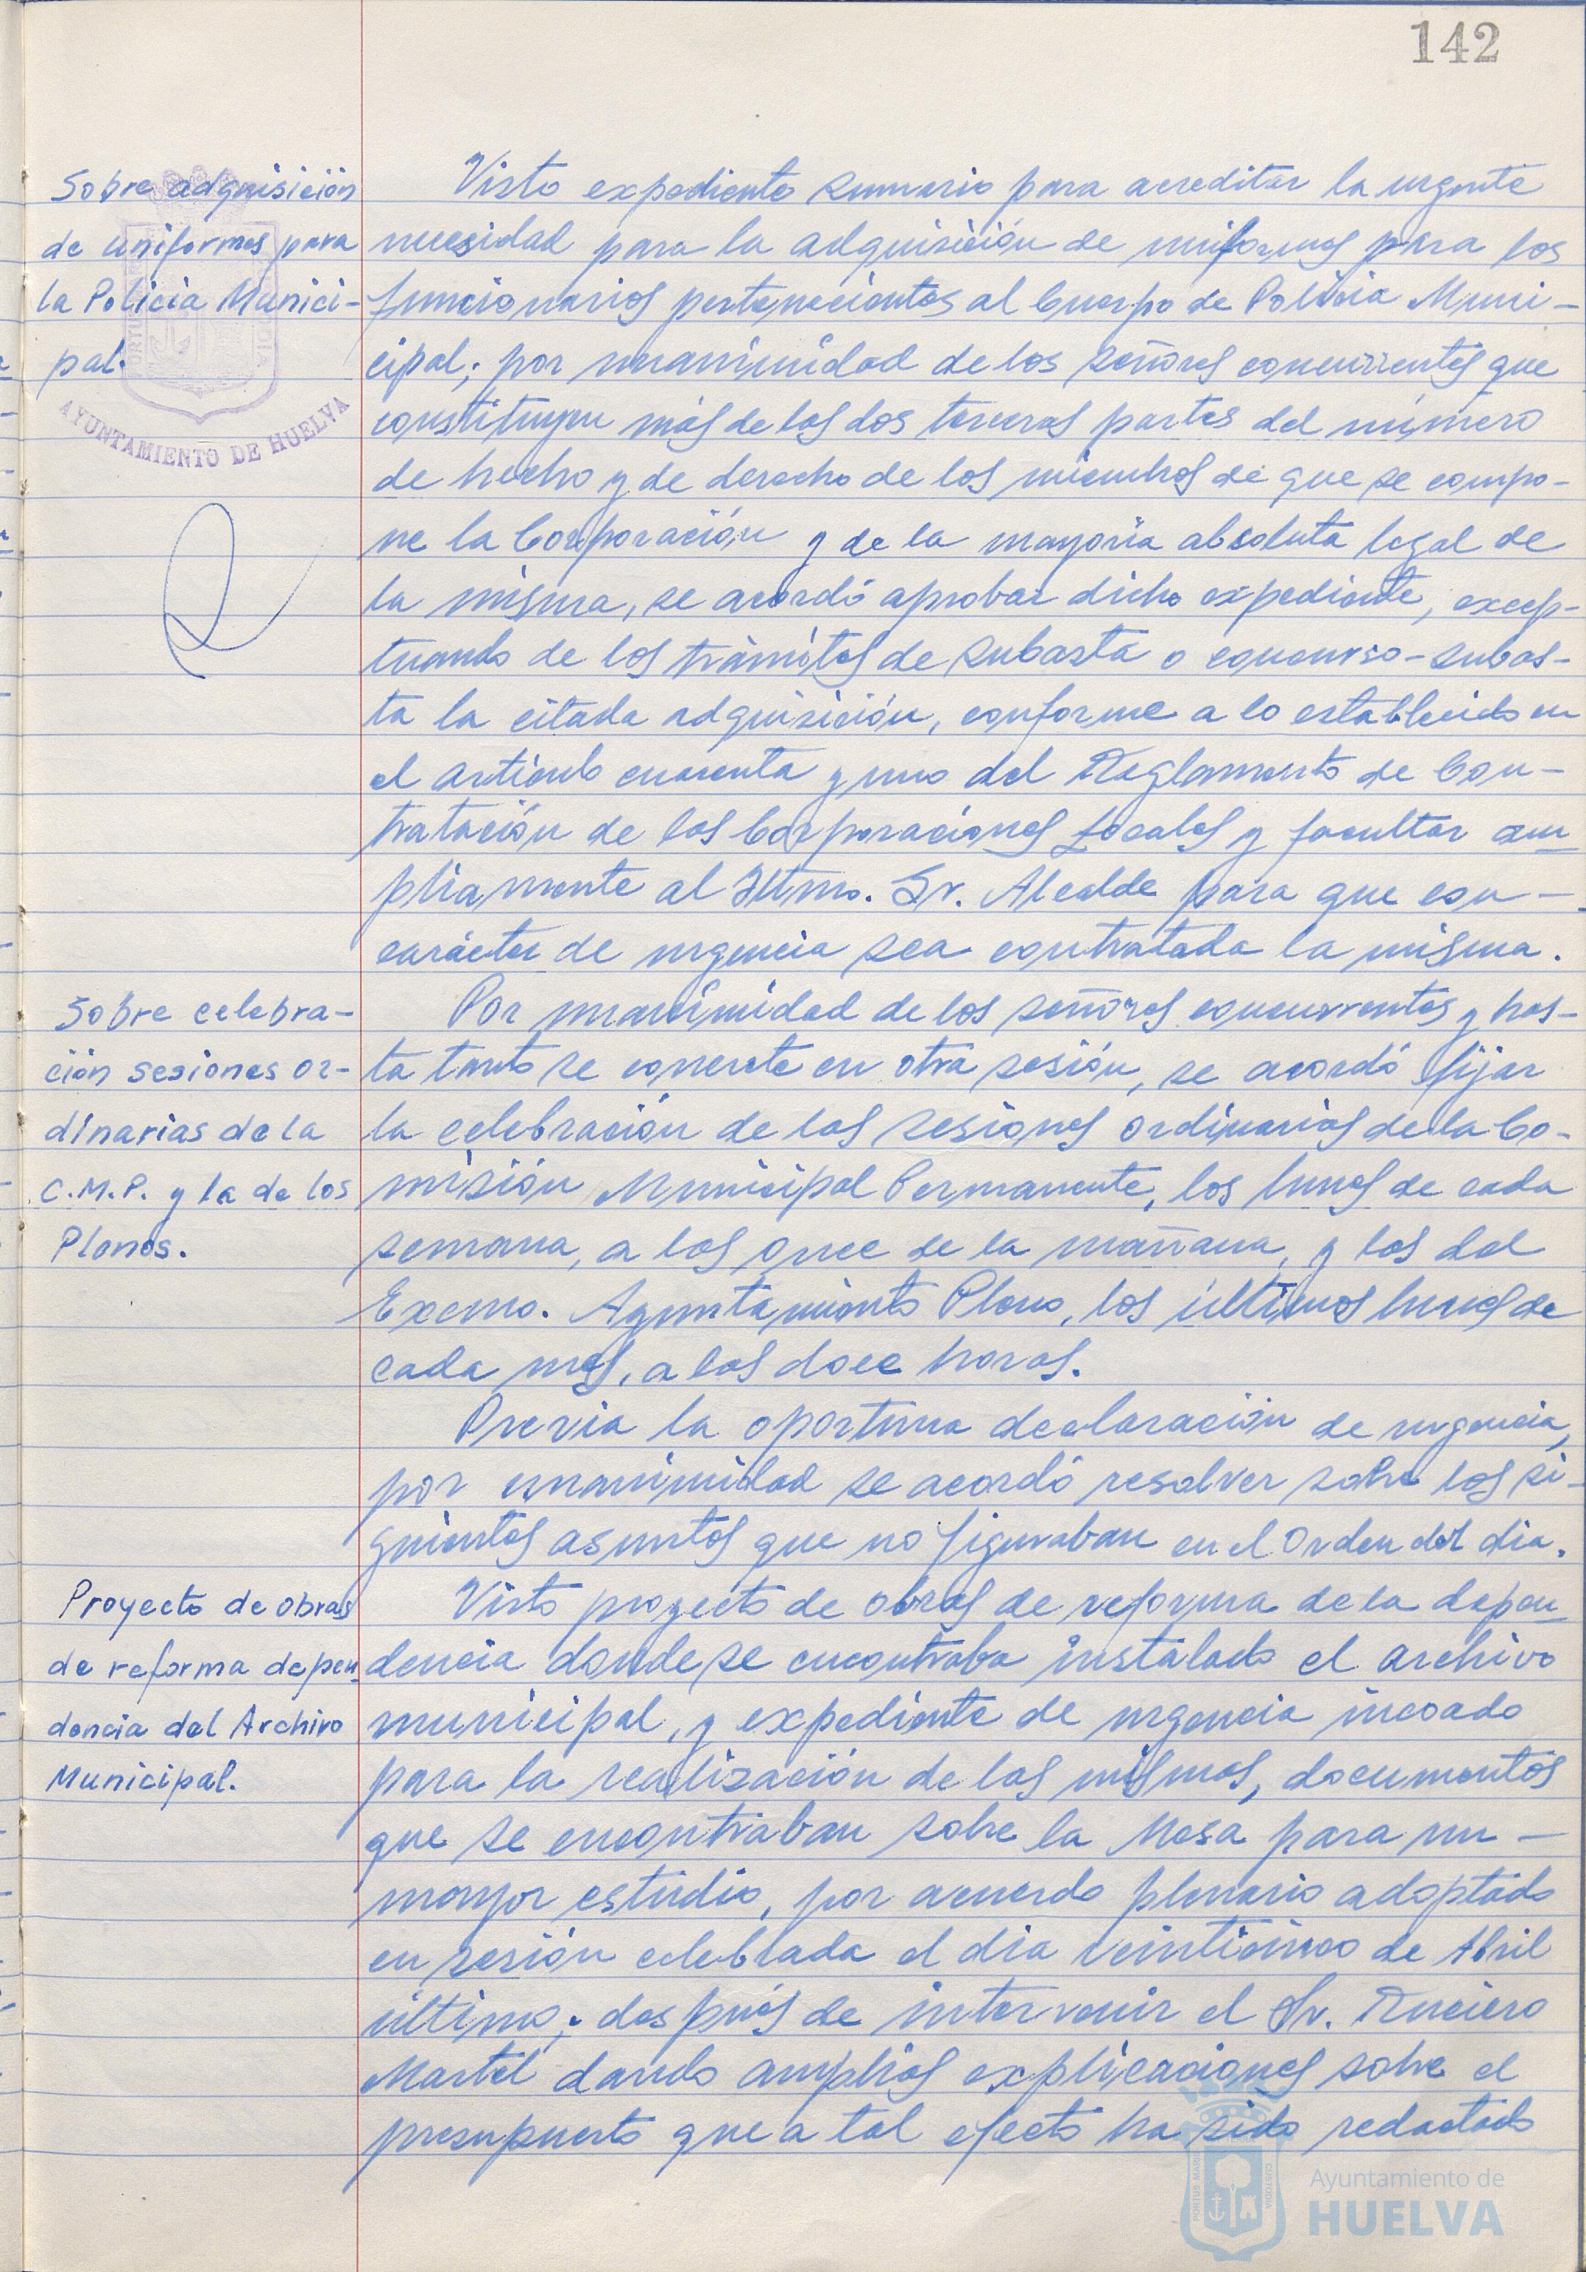 142
Sobre adquisición
de uniformes para
la Policia Munici-
pal.
AYUNTAMIENTO DE HUELVA
Visto expediente sumario para acreditar la urgente
necesidad para la adquisición de uniformes para los
funcionarios pertenecientes al Cuerpo de Policia Muni-
cipal; por unanimidad de los señores concurrentes que
constituyen más de las dos terceras partes del número
de hecho y de derecho de los miembros de que se compo-
ne la Corporación y de la mayoria absoluta legal de
la misma, se acordó aprobar dicho expediente, excep-
tuando de los trámites de subasta o concurso-subas-
ta la citada adquisición, conforme a lo establecido en
el articulo cuarenta y uno del Reglamento de Con-
tratación de las Corporaciones Locales y facultar am
pliamente al Iltmo. Sr. Alcalde para que con-
carácter de urgencia sea contratada la misma.
Sobre celebra-
ción sesiones or-
dinarias de la
C.M.P. y la de los
Plenos.
Por unanimidad de los señores concurrentes y has-
ta tanto se concrete en otra sesión, se acordó fijar
la celebración de las sesiones ordinarias de la Co-
misión Municipal Permanente, los lunes de cada
semana, a las once de la mañana, y las del
Excmo. Ayuntamiento Pleno, los últimos lunes de
cada mes, a las doce horas.
Previa la oportuna declaración de urgencia,
por unanimidad se acordó resolver sobre los si-
guientes asuntos que no figuraban en el Orden del dia.
Proyecto de obras
de reforma depen
dencia del Archivo
Municipal.
Visto proyecto de obras de reforma de la depen
dencia donde se encontraba instalado el archivo
municipal, y expediente de urgencia incoado
para la realización de las mismas, documentos
que se encontraban sobre la Mesa para un-
mayor estudio, por acuerdo plenario adoptado
en sesión celebrada el dia veinticinco de Abril
último; después de intervenir el Sr. Ruciero
Martel dando amplias explicaciones sobre el
presupuesto que a tal efecto ha sido redactado
PORTUS MARIS
CUSTODIA
Ayuntamiento de
HUELVA